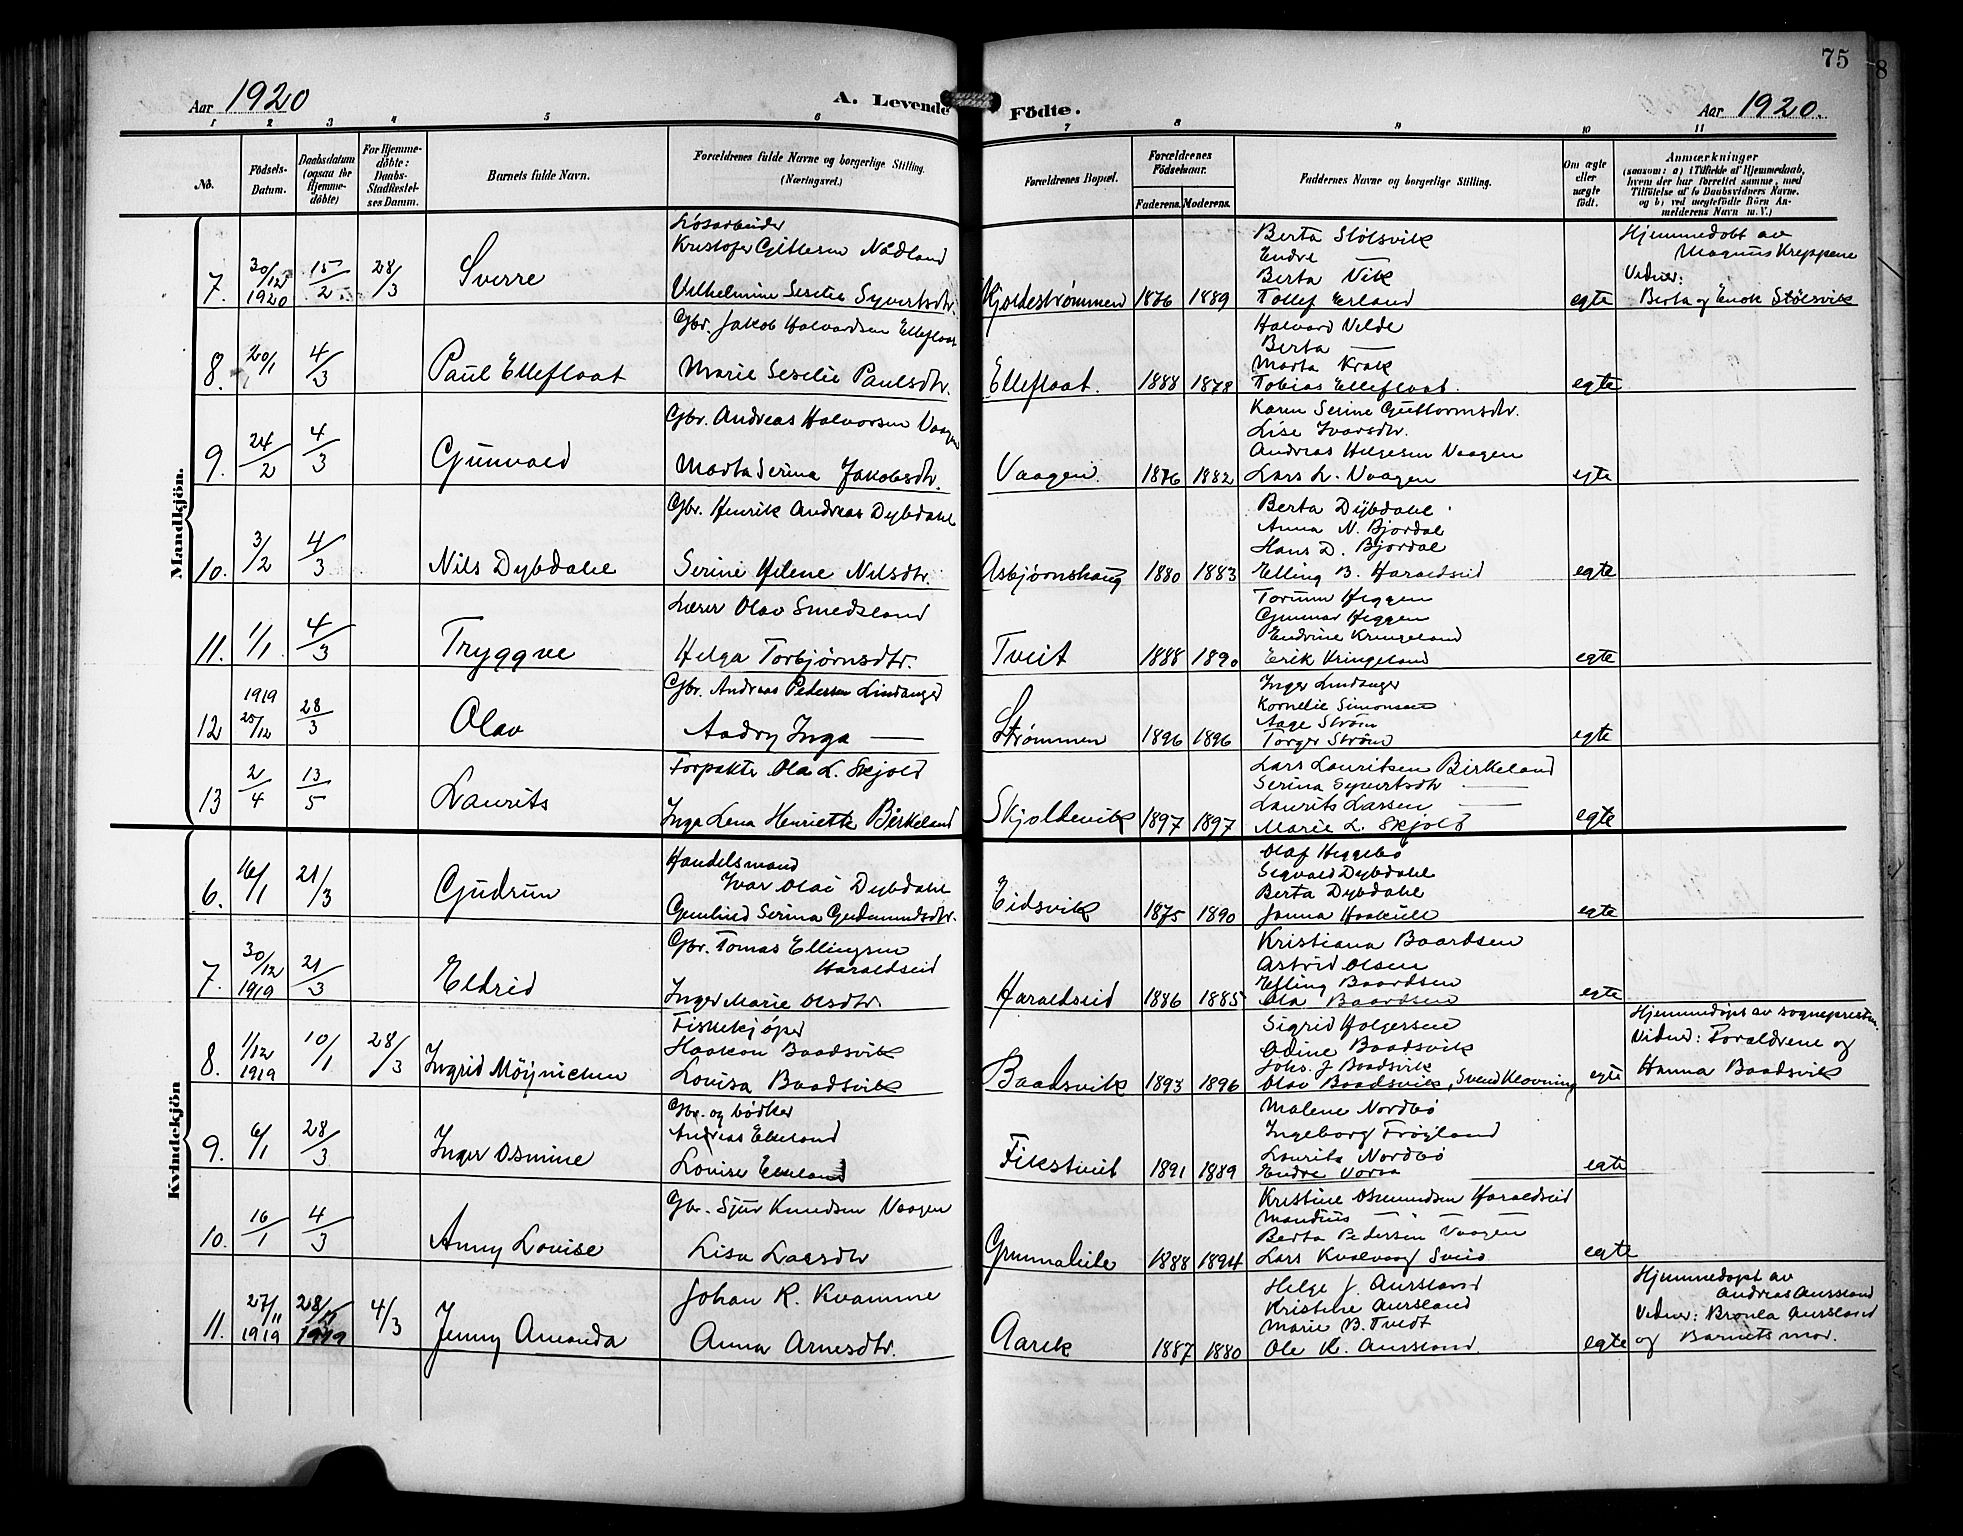 75
8
Aar 1920
A. Levende Födte.
Aar 1920.
1 2 3 4 5 6 7 8 9 10 11
No.
Födsels-Datum.
Daabsdatum (ogsaa for Hjemmedöbte)
For Hjemmedöbte: Daabs-Stadfæstelses Datum.
Barnets fulde Navn.
Forældrenes fulde Navne og borgerlige Stilling. (Næringsvei.)
Forældrenes Bopæl.
Forældrenes Födselsaar.
Faderens. Moderens.
Faddernes Navne og borgerlige Stilling.
Om ægte eller uægte födt.
Anmærkninger
(saasom: a) i Tilfælde af Hjemmedaab, hvem der har forrettet samme, med Tilföielse af to Daabsvidners Navne, og b) ved uægtefödte Börn Anmelderens Navn m. V.)
Mandkjön.
7. 30/12 1920 15/2 28/3 Sverre
Løsarbeider
Kristofer Gitlesen Nådland
Vilhelmine Serine Syvertsdtr.
Skjoldestrømmen 1876 1889
Berta Stölsvik
Endre
Berta Vik
Tollef Erland
egte
Hjemmedöbt av
Magnus Kreppene
Vidner:
Berta og Enok Stölsvik
8. 20/1 4/3 Paul Elleflaat
Gbr. Jakob Halvardsen Elleflaat
Marie Seselie Paulsdtr.
Elleflaat. 1888 1878
Halvard Velde
Berta —
Marta Krak
Tobias Elleflaat.
egte
9. 24/2 4/3 Gunvald
Gbr. Andreas Halvorsen Vaagen
Marta Serina Jakobsdtr.
Vaagen. 1876 1882
Karen Serine Guttormsdtr.
Lise Ivarsdtr.
Andreas Helgesen Vaagen
Lars L. Vaagen
egte
10. 3/2 4/3 Nils Dybdahl
Gbr. Henrik Andreas Dybdahl
Serine Helene Nilsdtr.
Asbjørnshaug 1880 1883
Berta Dybdahl
Anna N. Bjordal
Hans D. Bjordal
Elling B. Haraldseid
egte
11. 1/1 4/3 Tryggve
Lærer Olav Smedsland
Helga Torbjørnsdtr.
Tveit 1888 1890
Torunn Heggen
Gunnar Heggen
Endrine Kringeland
Erik Kringeland
egte
12 1919 25/12 28/3 Olav
Gbr. Andreas Pedersen Lindanger
Aadry Inga —
Strømmen 1896 1896
Inger Lindanger
Kornelie Simonsen
Aage Strøm
Torger Strøm
egte
13 2/4 13/5 Laurits
Forpakter Ola L. Skjold
Inga Lena Henriette Birkeland
Skjoldevik 1897 1897
Lars Lauritsen Birkeland
Serina Syvertsdtr —
Laurits Larsen —
Marie L. Skjold
egte
Kvindekjön
6. 16/1 21/3 Gudrun
Handelsmand
Ivar Olai Dybdahl
Gunhild Serina Gudmundsdtr.
Eidsvik 1875 1890
Olaf Heggebø
Sigvald Dybdahl
Berta Dybdahl
Janna Haakull
egte
7. 30/12 1919 21/3 Eldrid
Gbr. Tomas Ellingsen
Haraldseid
Inger Marie Olsdtr.
Haraldseid 1886 1885
Kristiana Baardsen
Astrid Olsen
Elling Baardsen
Ola Baardsen
egte
8. 1/12 1919 10/1 28/3 Ingrid Möynichen
Fiskekjøper
Haakon Baadsvik
Lovisa Baadsvik
Baadsvik 1893 1896
Sigrid Holgersen
Odine Baadsvik
Johs. J Baadsvik
Olav Baadsvik, Svend Klovning
egte
Hjemmedöpt av sognepresten.
Vidner: Foraldrene og
Hanna Baadsvik
9. 6/1 28/3 Inger Osmine
Gbr. og bödker
Andreas Ekeland
Lovise Ekeland
Fikstveit 1891 1889
Malene Nordbø
Ingeborg Frøyland
Laurits Nordbø
Endre Vorra
egte
10. 16/1 4/3 Anny Lovise
Gbr. Sjur Knudsen Vaagen
Lisa Larsdtr
Grunnaleite 1888 1894
Kristine Osmundsen Haraldseid
Mandius — —
Berta Pedersen Vaagen
Lars Kvalvaag Sveio
egte
11. 27/11 1919 28/11 1919 4/3 Jenny Amanda
Johan K. Kvamme
Anna Arnesdtr.
Aarek 1887 1880
Helge J. Aursland
Kristine Aursland
Marie B. Tvedt
Ole K. Aursland.
egte
Hjemmedöpt av
Andreas Aursland
Vidner: Bronla Aursland
og Barnets mor.